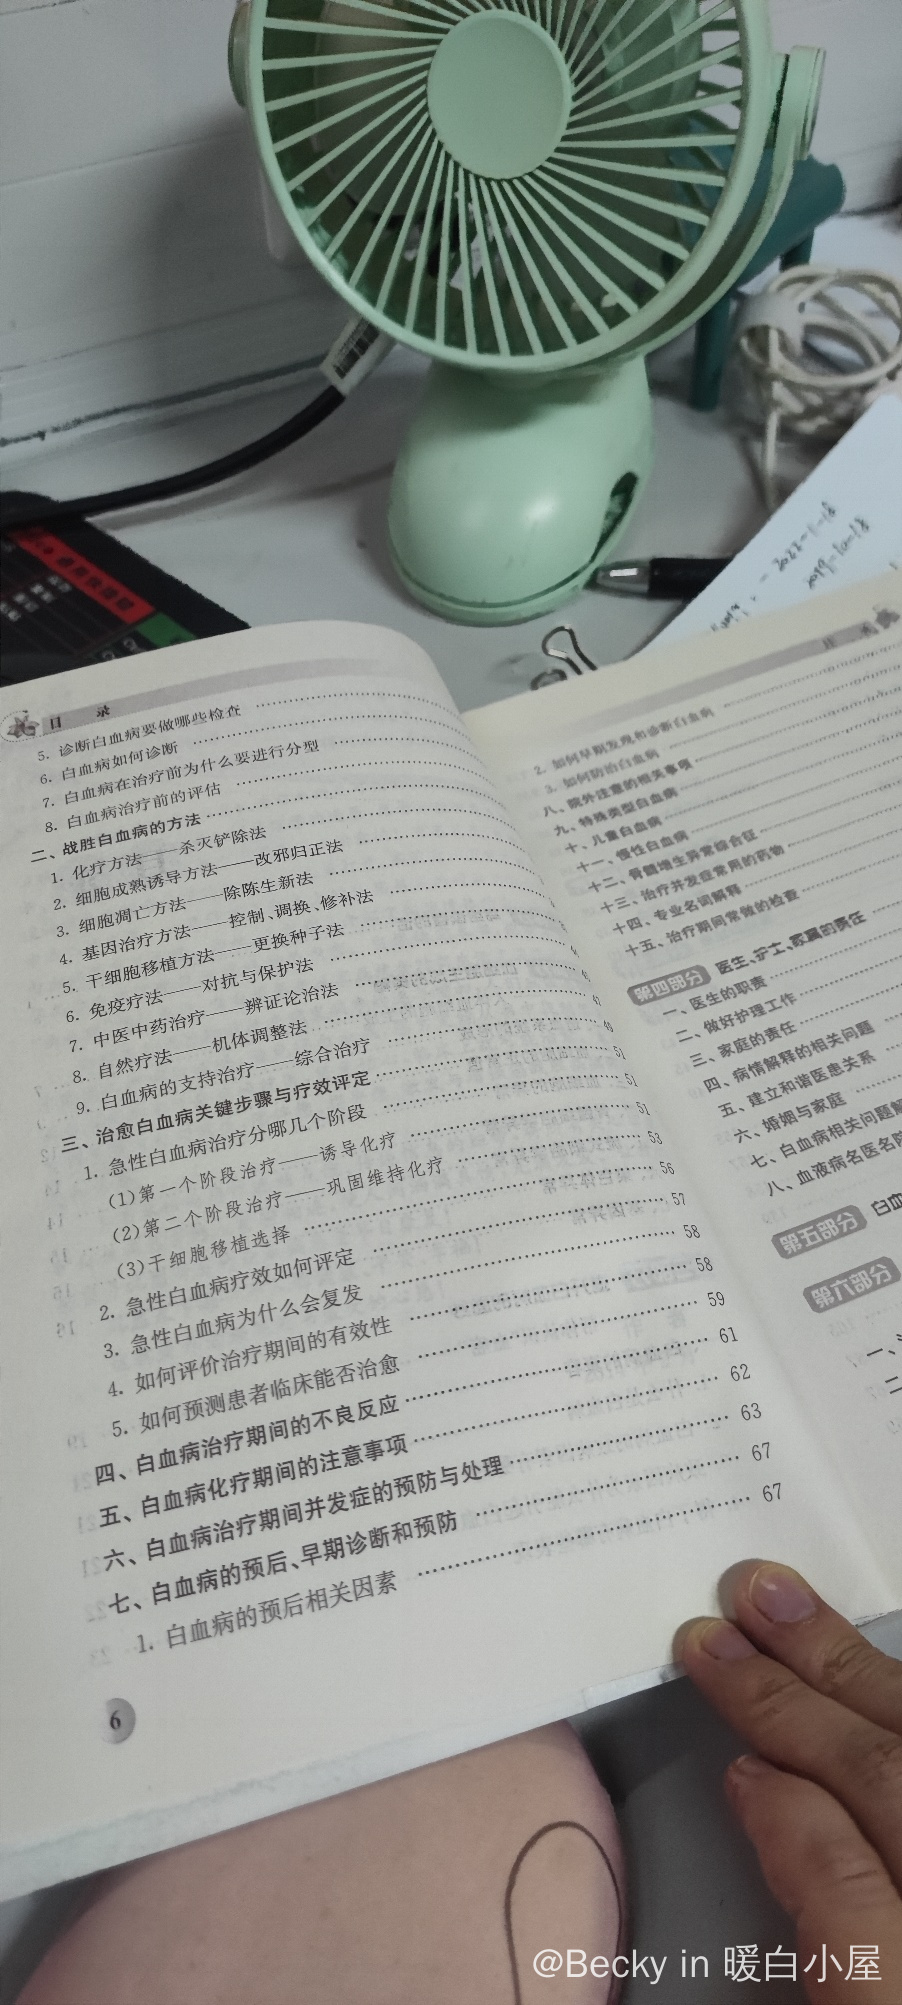 目 录
5. 诊断白血病要做哪些检查
6. 白血病如何诊断
7. 白血病在治疗前为什么要进行分型
8. 白血病治疗前的评估
二、战胜白血病的方法
1. 化疗方法——杀灭铲除法
2. 细胞成熟诱导方法——改邪归正法
3. 细胞凋亡方法——除陈生新法
4. 基因治疗方法——控制、调换、修补法
5. 干细胞移植方法——更换种子法
6. 免疫疗法——对抗与保护法
7. 中医中药治疗——辨证论治法
8. 自然疗法——机体调整法
9. 白血病的支持治疗——综合治疗 49
三、治愈白血病关键步骤与疗效评定 51
1. 急性白血病治疗分哪几个阶段 51
(1)第一个阶段治疗——诱导化疗 51
(2)第二个阶段治疗——巩固维持化疗 53
(3)干细胞移植选择 56
2. 急性白血病疗效如何评定 57
3. 急性白血病为什么会复发 58
4. 如何评价治疗期间的有效性 58
5. 如何预测患者临床能否治愈 59
四、白血病治疗期间的不良反应 61
五、白血病化疗期间的注意事项 62
六、白血病治疗期间并发症的预防与处理 63
七、白血病的预后、早期诊断和预防 67
1. 白血病的预后相关因素 67
6
目 录
2. 如何早期发现和诊断白血病
3. 如何防治白血病
八、院外注意的相关事项
九、特殊类型白血病
十、儿童白血病
十一、慢性白血病
十二、骨髓增生异常综合征
十三、治疗并发症常用的药物
十四、专业名词解释
十五、治疗期间常做的检查
第四部分 医生、护士、家属的责任
一、医生的职责
二、做好护理工作
三、家庭的责任
四、病情解释的相关问题
五、建立和谐医患关系
六、婚姻与家庭
七、白血病相关问题解
八、血液病名医名院
第五部分 白血
第六部分
一、
二
@Becky in 暖白小屋